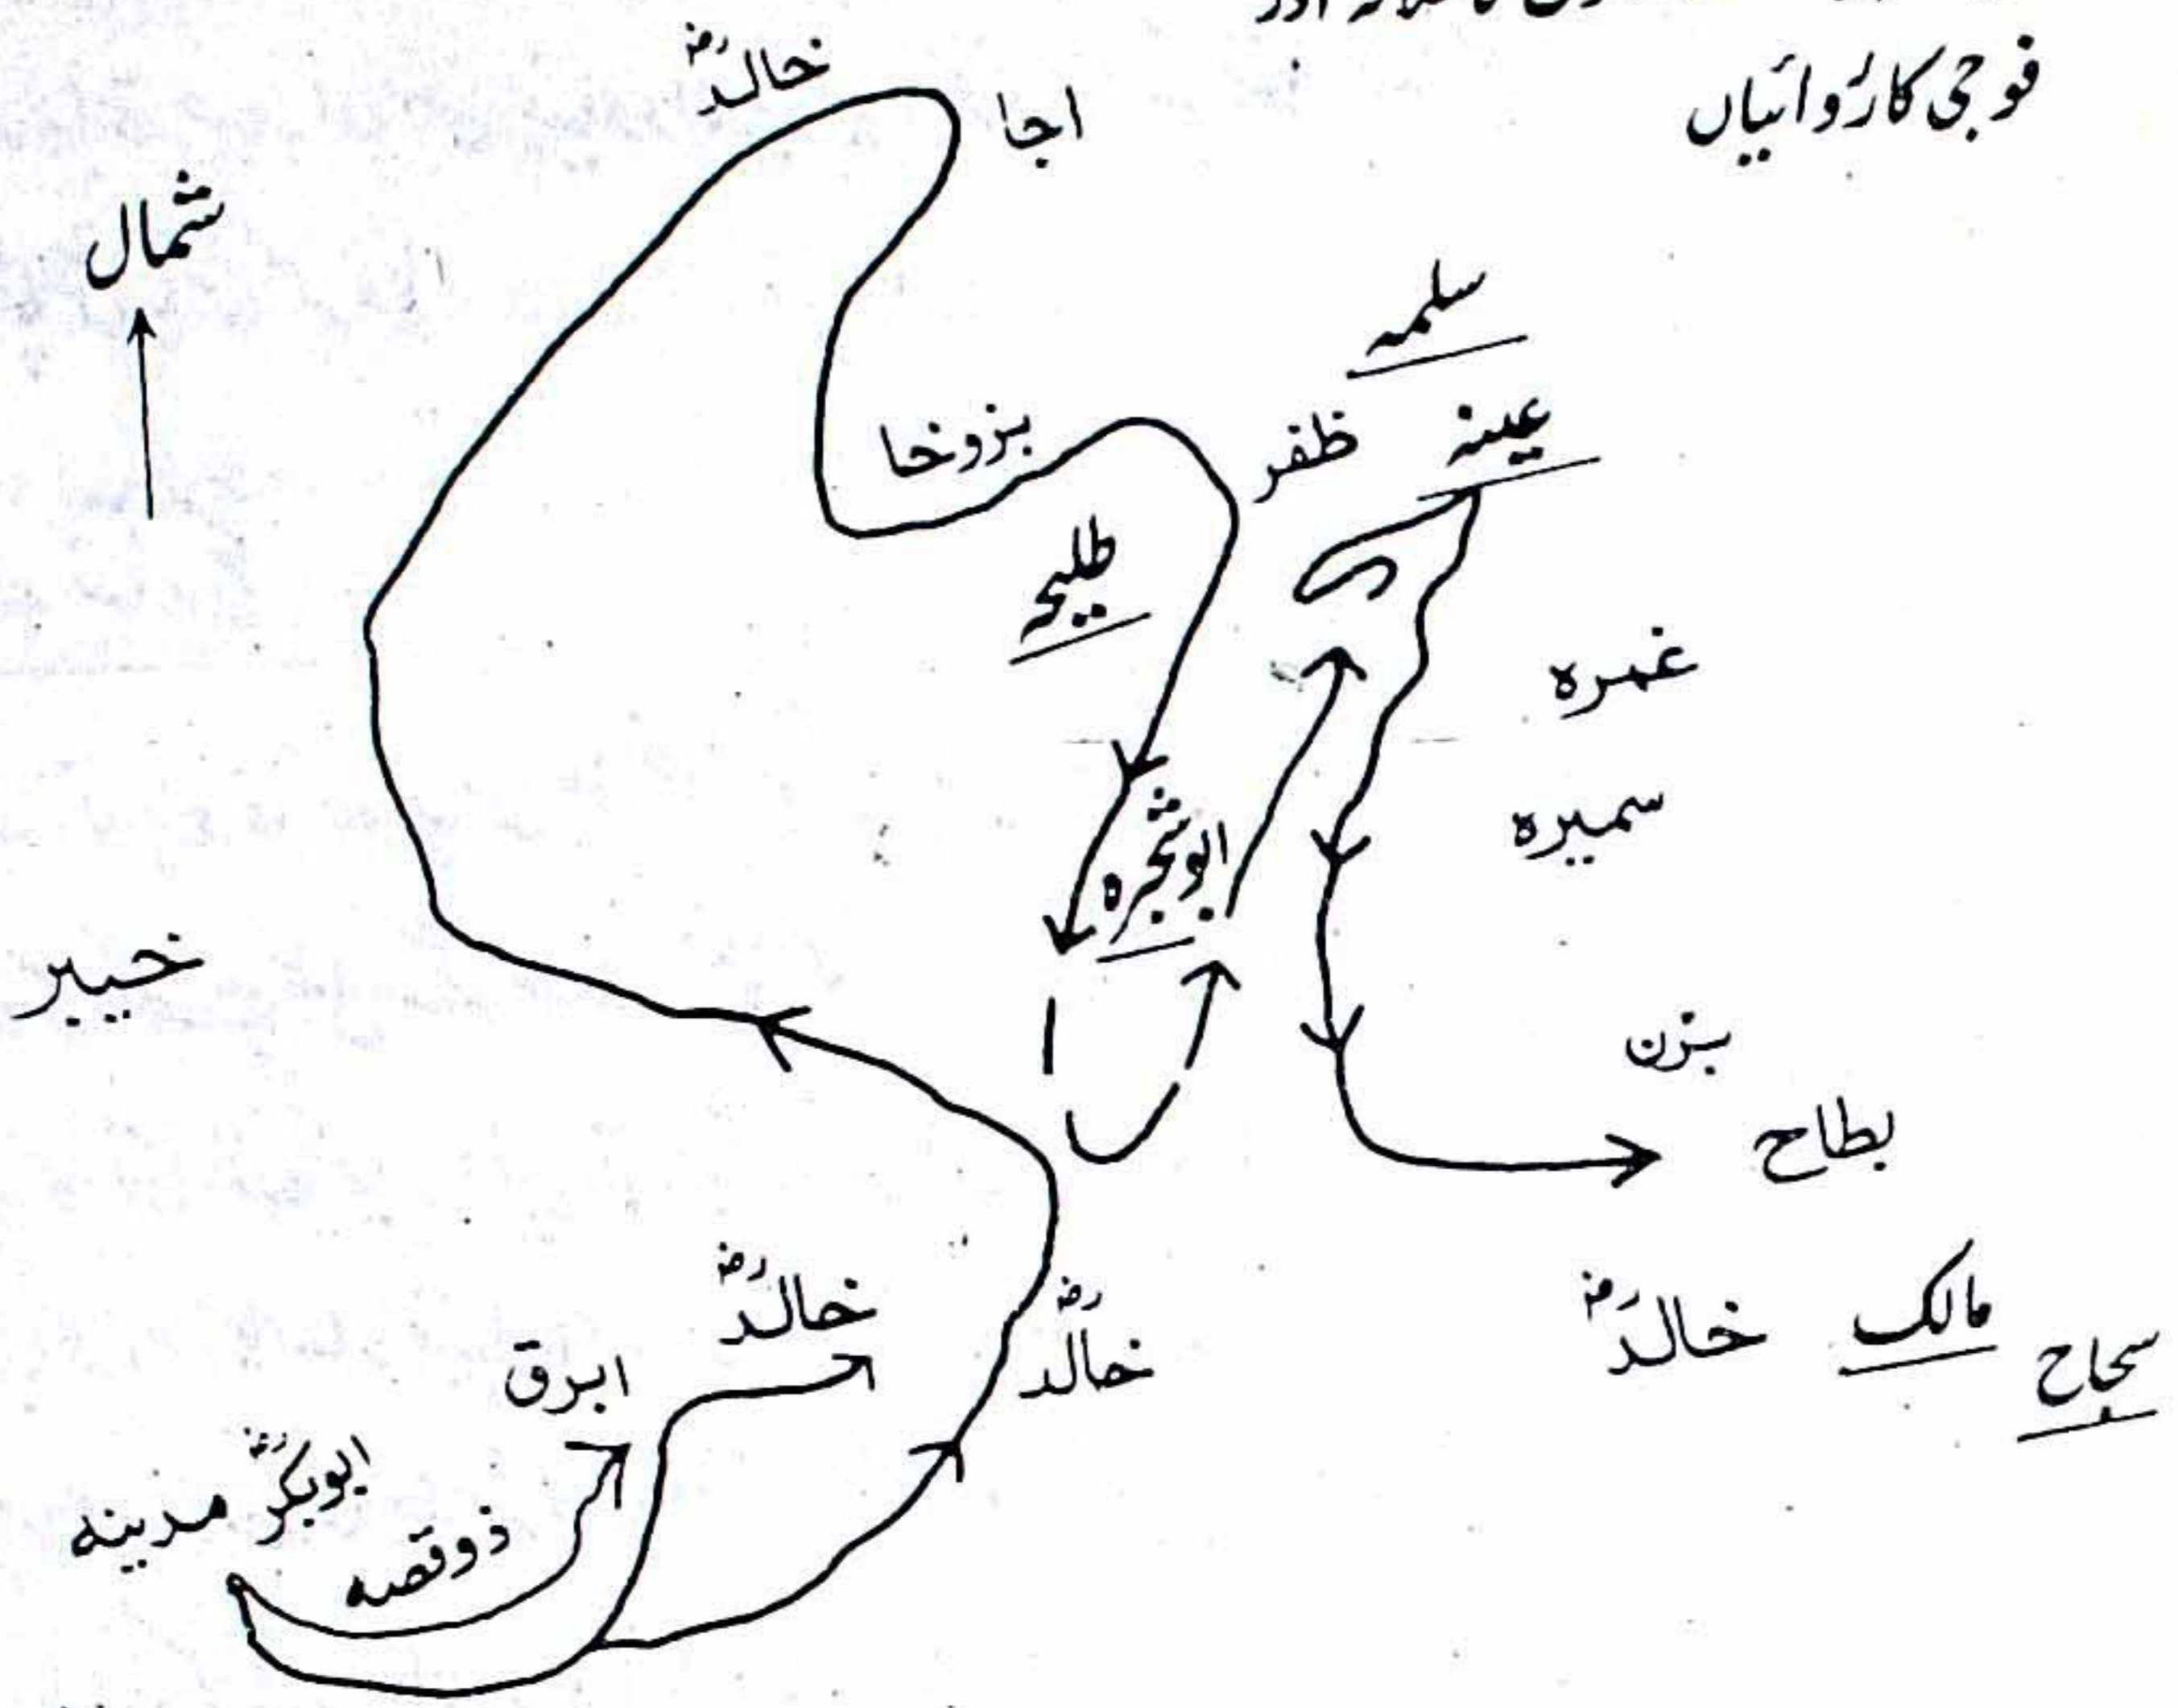 اور
فوجی کارُوائیاں
خالدؓ
اجا
شمال
سلمہ
بزوخا
ظفر
عینہ
طلیحہ
غمرہ
سمیرہ
ابوشجرہ
خیبر
بزن
بطاح
خالدؓ
ابرق
خالدؓ
خالدؓ
مالک
سجاح
ابوبکرؓ
مدینہ
ذوقصہ